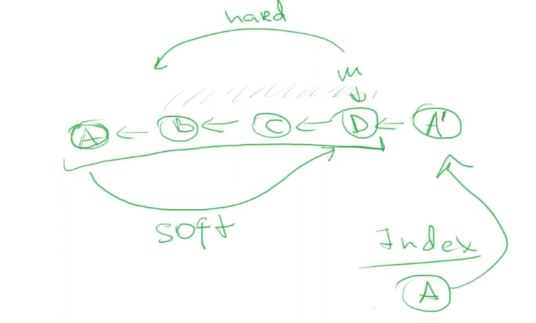 hard
m
A ← B ← C ← D ← A'
soft
Index
A